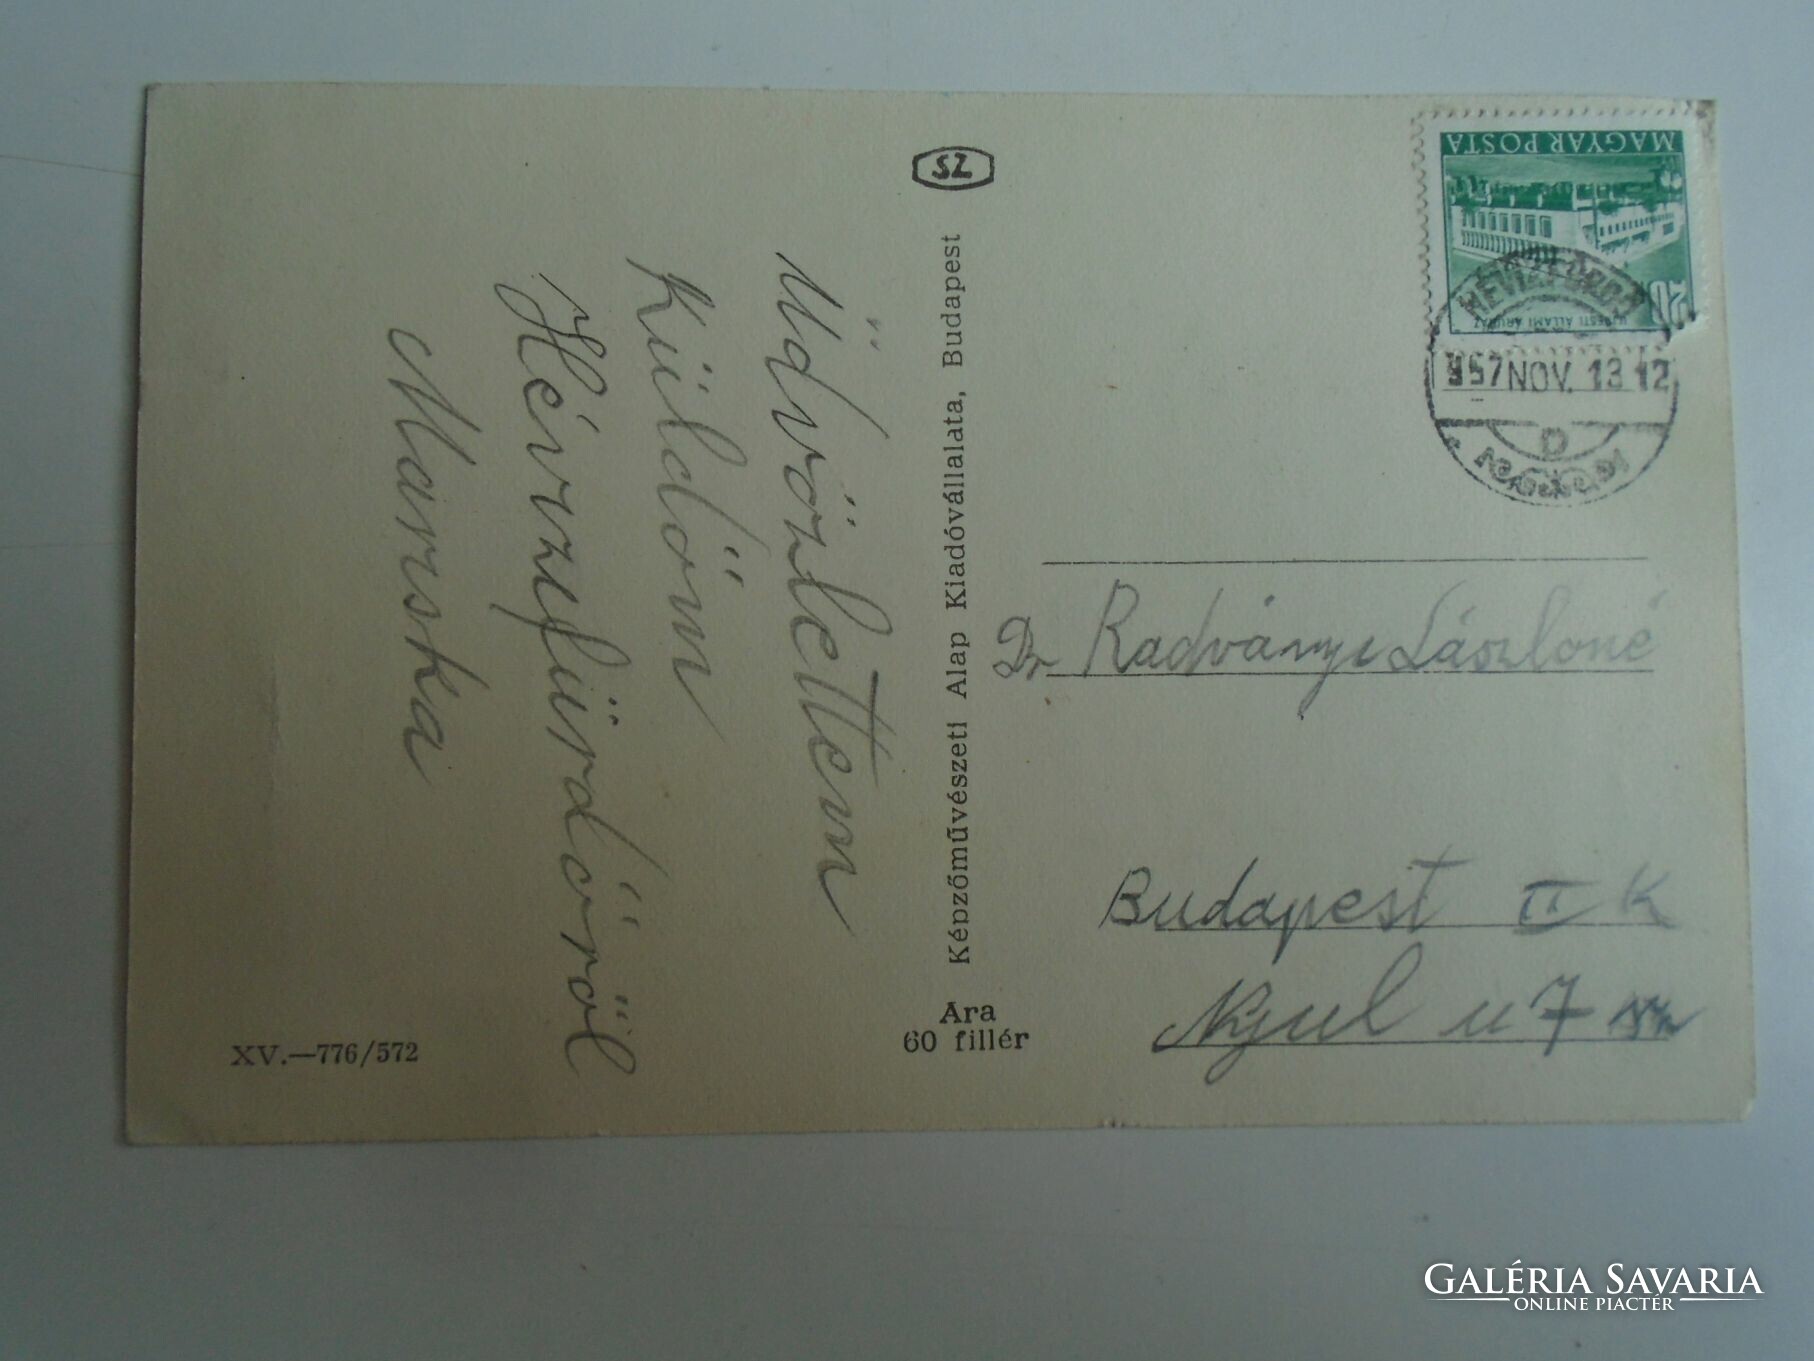 Üdvözlettem
Küldöm
Hévízfürdőről
Mariska
XV.—776/572
SZ
Képzőművészeti Alap Kiadóvállalata, Budapest
Ara
60 fillér
MAGYAR POSTA
20
ÚJPESTI ÁLLAMI ÁRUHÁZ
HÉVÍZFÜRDŐ
957 NOV. 13 12
D
Dr Radványi Lászloné
Budapest II K
Nyul u 7
GALÉRIA SAVARIA
ONLINE PIACTÉR